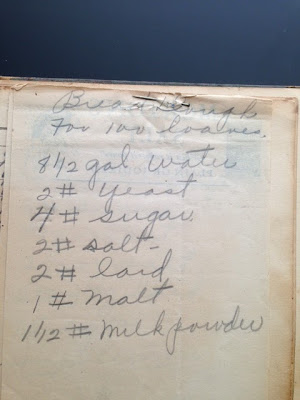 Bread Dough
For 100 loaves.
8 1/2 gal water
2 # yeast
4 # sugar
2 # salt
2 # lard
1 # malt
1 1/2 # milk powder